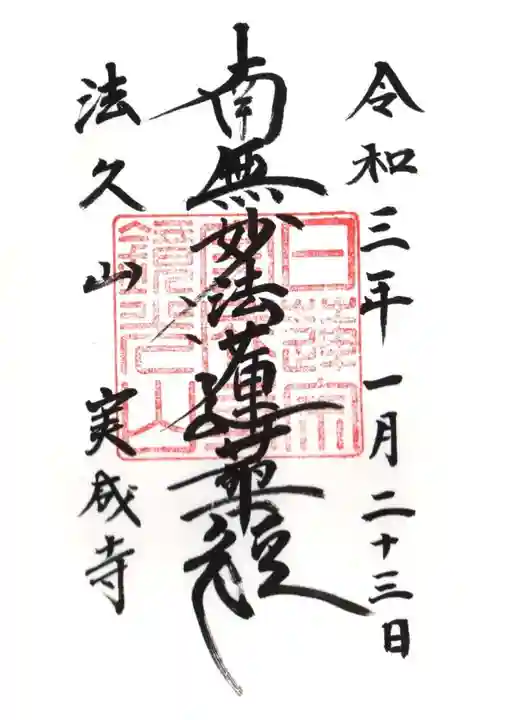 令和三年一月二十三日
南無妙法蓮華経
法久山 実成寺
日蓮宗